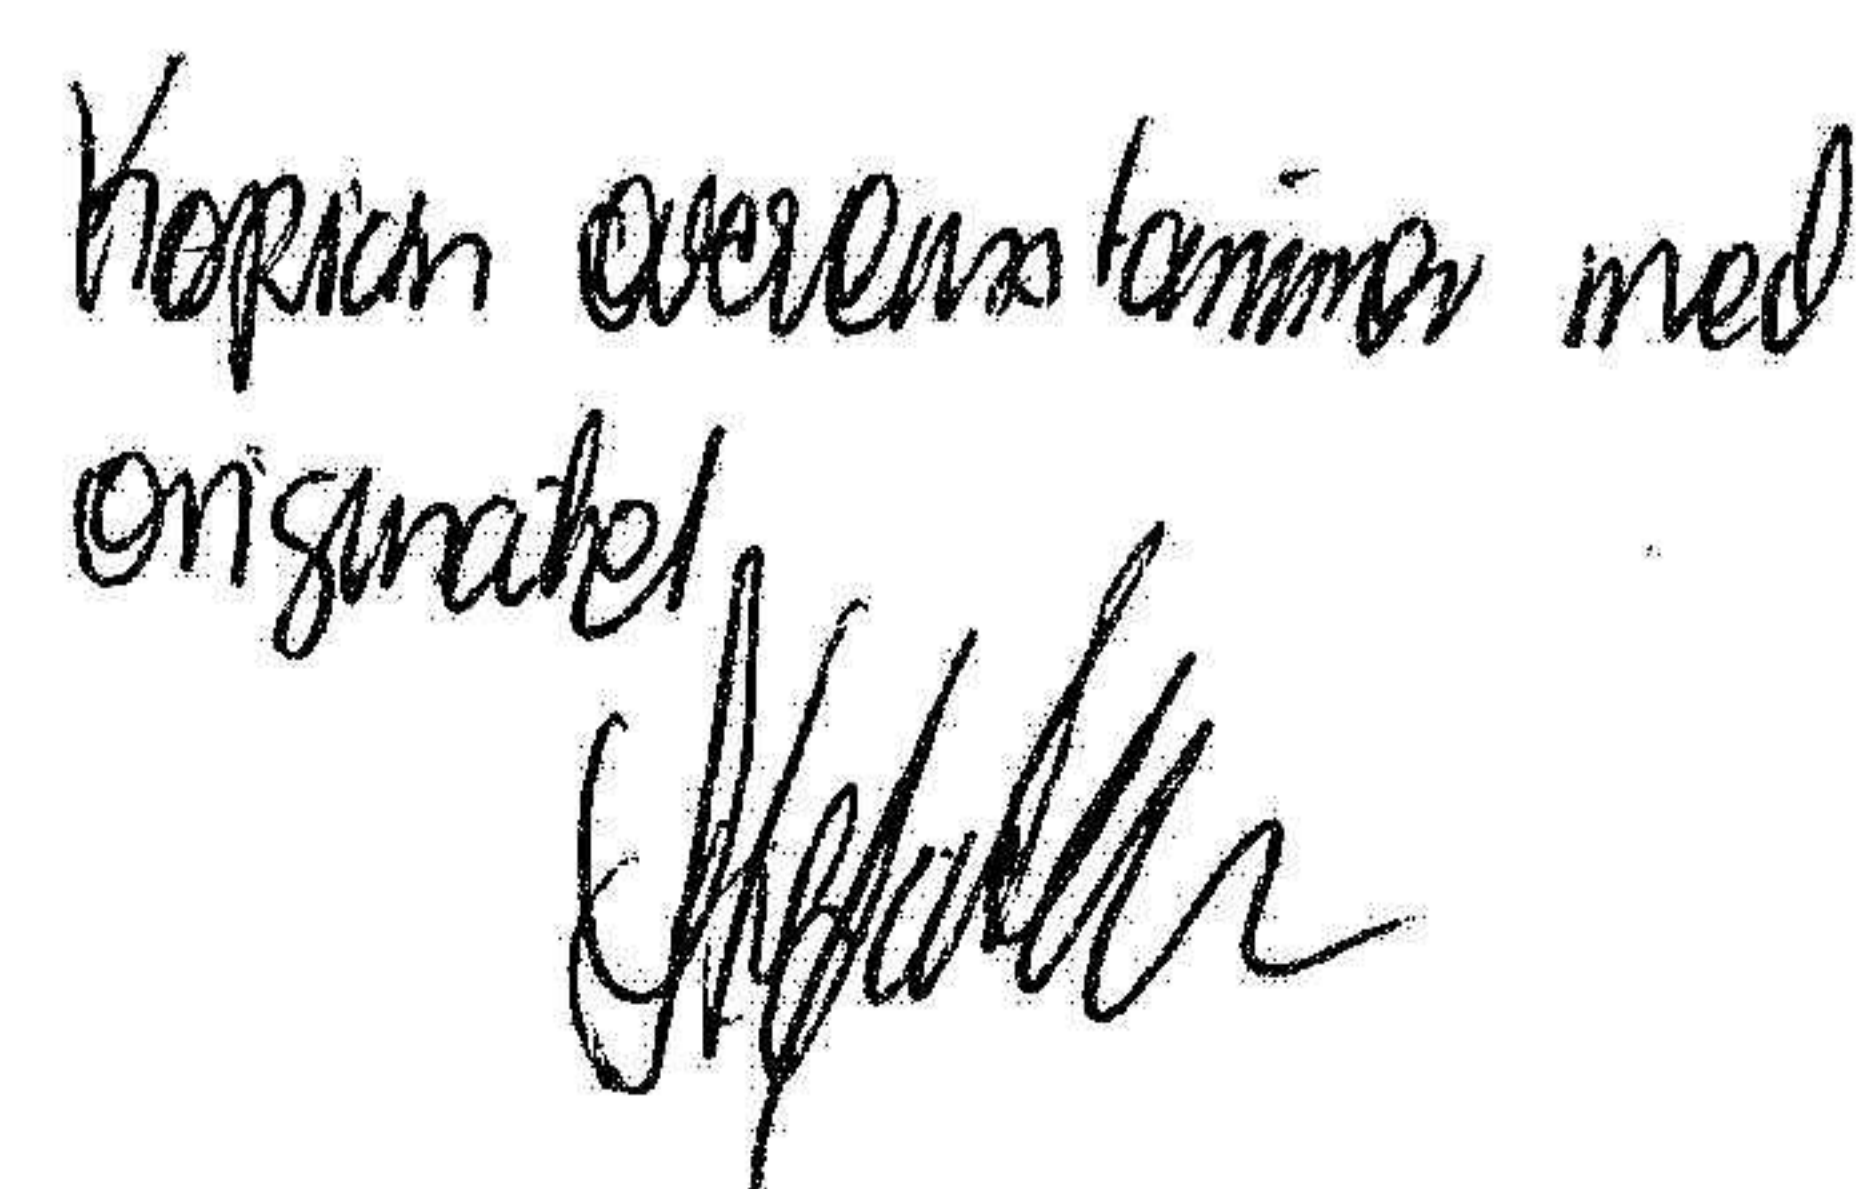 Kopian överensstämmer med
originalet